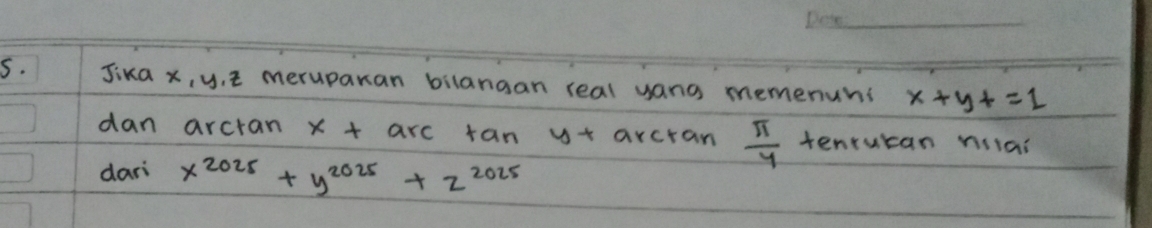 Date:
5. Jika x, y, z merupakan bilangan real yang memenuhi x + y + = 1
dan arctan x + arc tan y + arctan π/4 tentukan nilai
dari x^2025 + y^2025 + z^2025